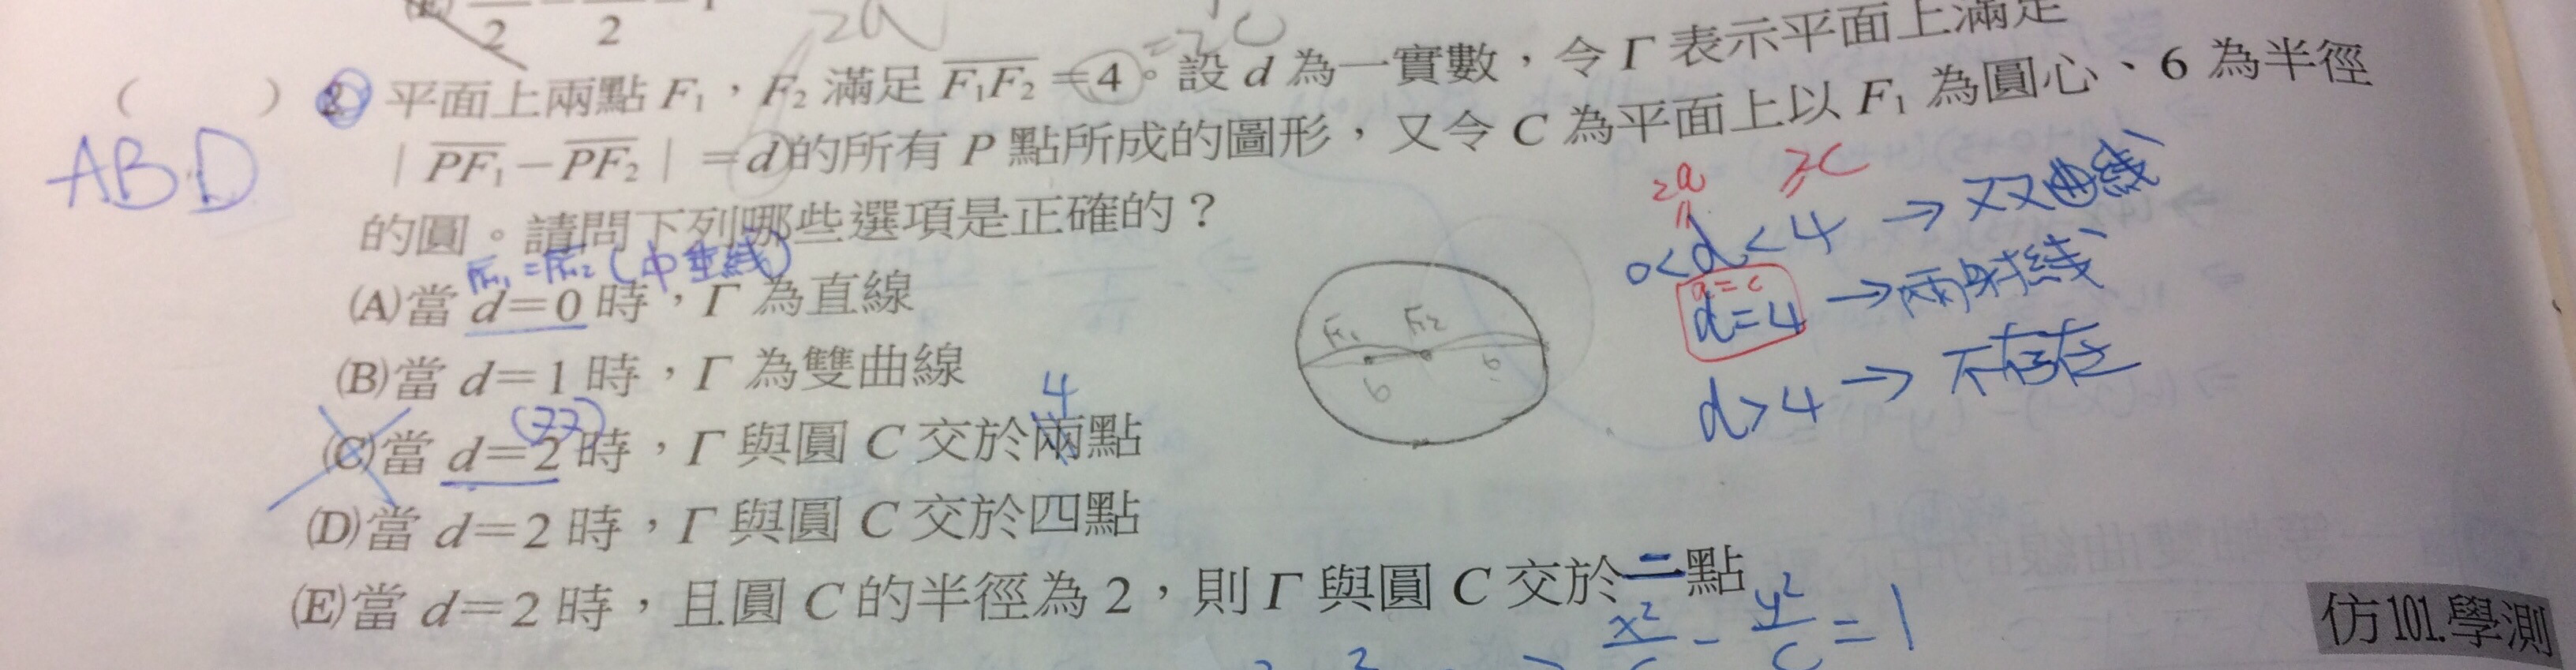 2 2
2a =2C
( ) 2. 平面上兩點 F₁,F₂ 滿足 F₁F₂ =4。設 d 為一實數,令 Γ 表示平面上滿足
| PF₁ − PF₂ | =d的所有 P 點所成的圖形,又令 C 為平面上以 F₁ 為圓心、6 為半徑
的圓。請問下列哪些選項是正確的?
ABD
PF₁ = PF₂ (中垂線)
(A)當 d=0 時,Γ 為直線
(B)當 d=1 時,Γ 為雙曲線
(双) 4
(C)當 d=2 時,Γ 與圓 C 交於兩點
(D)當 d=2 時,Γ 與圓 C 交於四點
(E)當 d=2 時,且圓 C 的半徑為 2,則 Γ 與圓 C 交於二點
F₁ F₂
6 6
2a 2C
0<d<4 → 双曲线
a=c
d=4 → 兩射线
d>4 → 不存在
x² − y² = 1
仿 101.學測